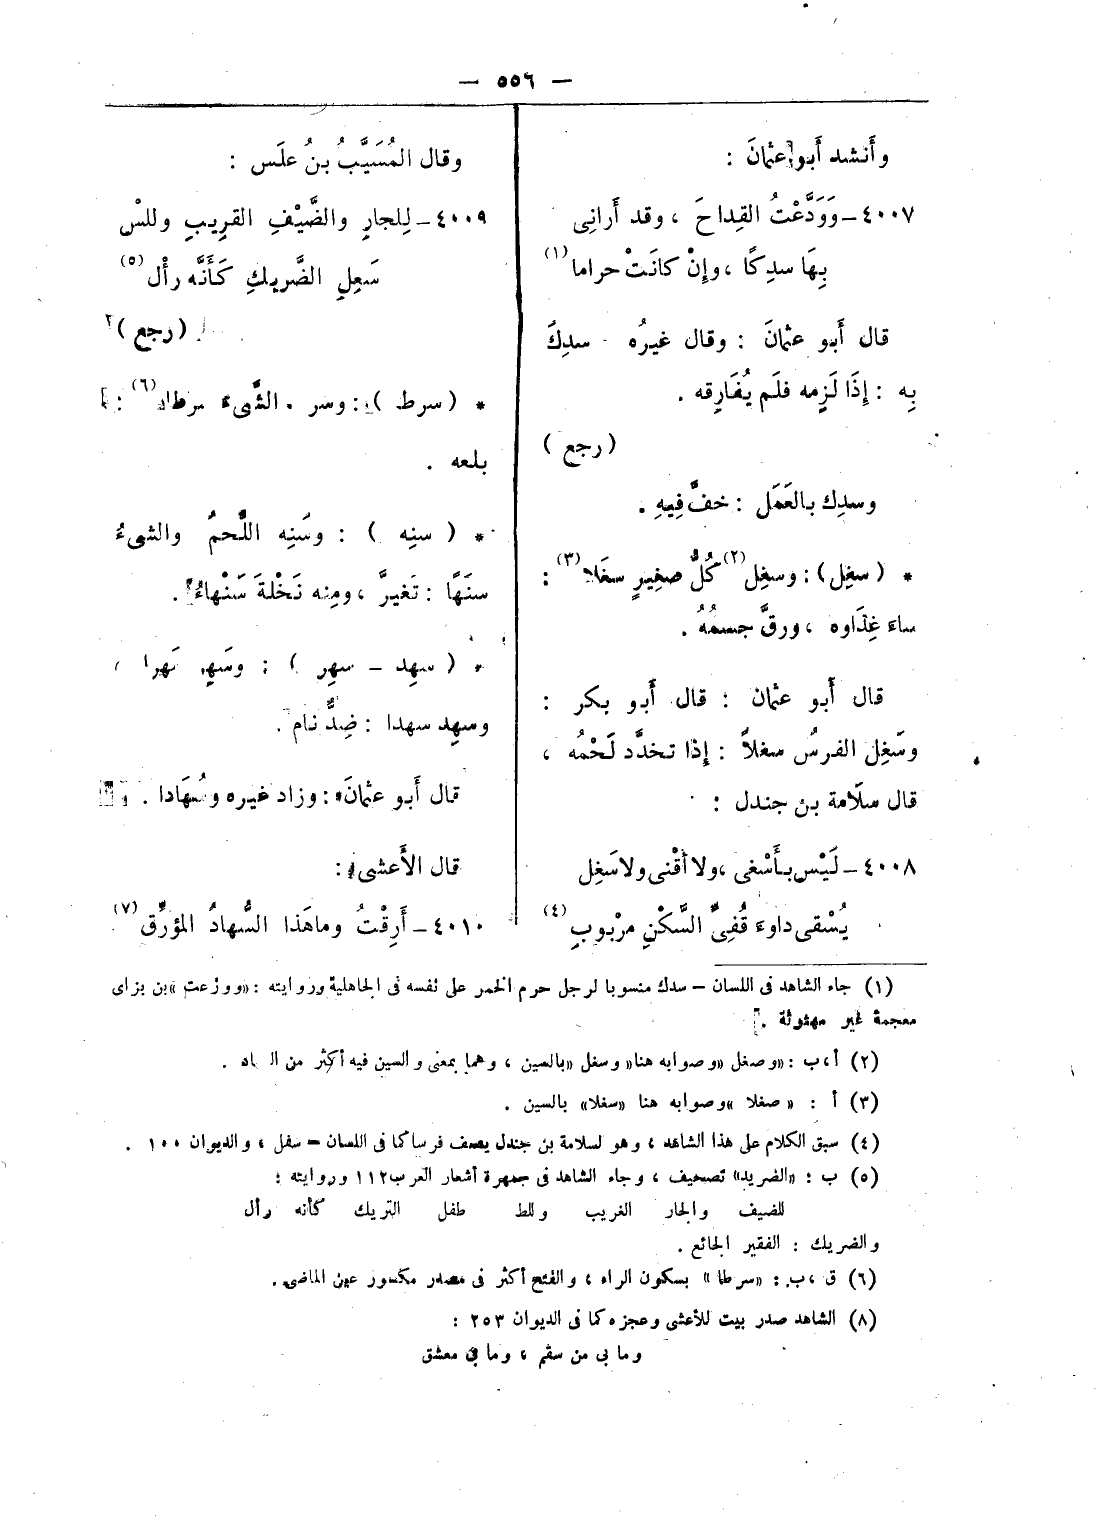 — ٥٥٦ —
وأَنشد أَبو عثمانَ :
٤٠٠٧ــ وَوَدَّعْتُ القِداحَ ، وقد أَرانِى
بِهَا سدِكًا ، وإِنْ كانَتْ حراما (١)
قال أَبو عثمانَ : وقال غيرُه سدِكَ
بِه : إِذَا لَزِمه فلَم يُفَارِقه .
(رجع)
وسدِك بالعَمَل : خفَّ فِيهِ .
* (سغِل) : وسغِل (٢) كُلُّ صغِيرٍ سغَلا (٣) :
ساءَ غِذَاوه ، ورقَّ جسمُهُ .
قال أَبو عثمان : قال أَبو بكر :
وسَغِل الفرسُ سغلاً : إِذا تخدَّد لَحْمُه ،
قال سلَامة بن جندل :
٤٠٠٨ــ لَيْس بأَسْغى ، ولا أَقْنى ولا سَغِل
يُسْقى داوءَ قُفِىِّ السَّكْنِ مرْبوبِ (٤)
وقال المُسَيَّبُ بنُ علَس :
٤٠٠٩ــ لِلجارِ والضَّيْفِ القرِيبِ وللسْ
سَعِلِ الضَّرِيكِ كَأَنَّه رأْل (٥)
(رجع)
* (سرط) : وسر الشَّىءَ (٦) :
بلعه .
* (سنِه) : وسَنِه اللَّحمُ والشىءُ
سنَهًا : تَغيرَّ ، ومِنه نَخْلةَ سَنْهاءُ .
* (سهِد ــ سهِر) :
وسهِد سهدا : ضِدُّ نام .
قال أَبو عثمانَ : وزاد غيره وسُهَادا .
قال الأَعشى :
٤٠١٠ــ أَرِقْتُ وما هَذا السُّهادُ المؤَرِّق (٧)
(١) جاء الشاهد فى اللسان – سدك منسوبا لرجل حرم الخمر على نفسه فى الجاهلية وروايته : «ووزعت» بن بزاى
معجمة غير مهثوثة .
(٢) أ ، ب : «وصغل» وصوابه هنا «وسغل» بالسين ، وهما بمعنى والسين فيه أكثر من
(٣) أ : «صغلا» وصوابه هنا «سغلا» بالسين .
(٤) سبق الكلام على هذا الشاهد ، وهو لسلامة بن جندل يصف فرسا كما فى اللسان – سفل ، والديوان ١٠٠ .
(٥) ب : «الضريد» تصحيف ، وجاء الشاهد فى جمهرة أشعار العرب ١١٢ وروايته :
للضيف والجار الغريب وللط طفل التريك كأنه رأل
والضريك : الفقير الجائع .
(٦) ق ، ب : «سرطا» بسكون الراه ، والفتح أكثر فى مصدر مكسور عين الماضى .
(٨) الشاهد صدر بيت للأعشى وعجزه كما فى الديوان ٢٥٣ :
وما بى من سقم ، وما بى معشق